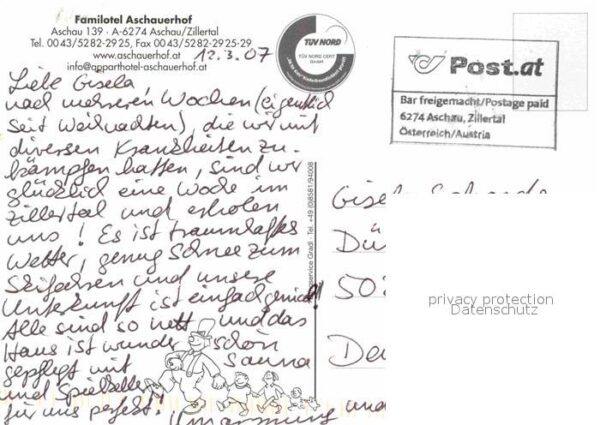 Familotel Aschauerhof
Aschau 139 · A-6274 Aschau/Zillertal
Tel. 00 43/5282-2925, Fax 00 43/5282-2925-29
www.aschauerhof.at
info@apparthotel-aschauerhof.at
12.3.07
TÜV NORD
TÜV NORD CERT
GmbH
Post.at
Bar freigemacht/Postage paid
6274 Aschau, Zillertal
Österreich/Austria
Liebe Gisela,
nach mehreren Wochen (eigentlich
seit Weihnachten), die wir mit
diversen Krankheiten zu-
kämpfen hatten, sind wir
glücklich eine Woche im
Zillertal und erholen
uns! Es ist traumhaftes
Wetter, genug Schnee zum
Skifahren und unsere
Unterkunft ist einfach genial!
Alle sind so nett und das
Haus ist wunderschön
gepflegt mit Sauna
und
für uns perfekt!
service Gradl · Tel. +49 (0)8581/94008
Gisela
Dü
50
De
privacy protection
Datenschutz